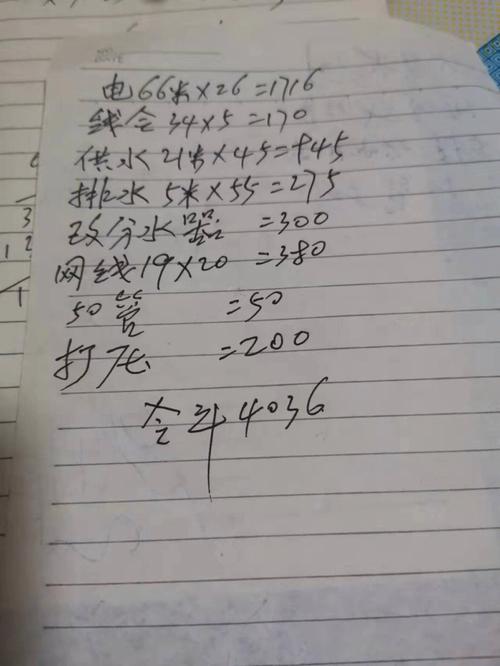 电66米×26=1716
线仝34×5=170
供水21米×45=945
排水5米×55=275
改分水器 =300
网线19×20 =380
50管 =50
打灰 =200
仝斗4036